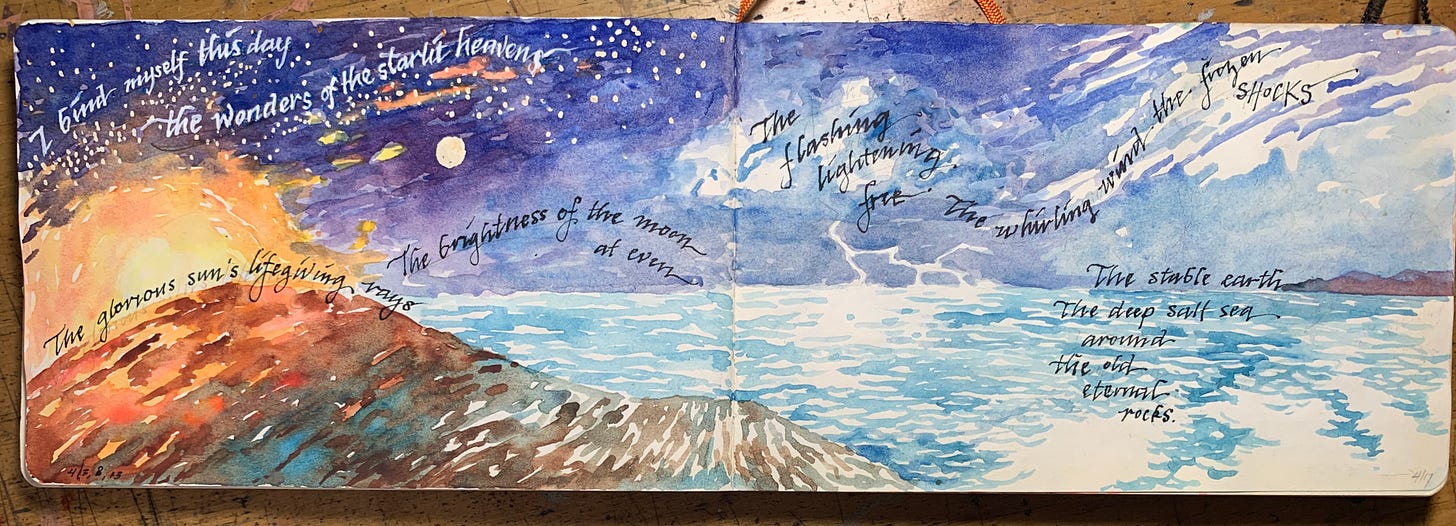 I bind myself this day
the wonders of the starlit heavens
The glorious sun's lifegiving rays
The brightness of the moon
at even
The
flashing
lightening
free.
The whirling wind the frozen
SHOCKS
The stable earth
The deep salt sea
around
the old
eternal
rocks.
4/3, 8, 13
4/17